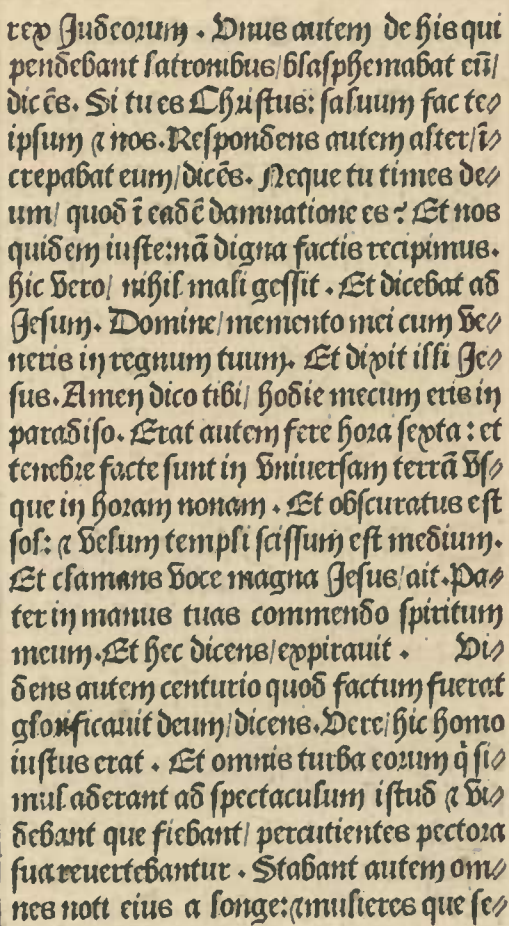 rex Judeorum . Vnus autem de his qui
pendebant latronibus/blasphemabat eū/
dicēs. Si tu es Christus: saluum fac te⸗
ipsum ⁊ nos. Respondens autem alter/ī⸗
crepabat eum/dicēs. Neque tu times de⸗
um/ quod ī eadē damnatione es ? Et nos
quidem iuste:nā digna factis recipimus.
hic vero/ nihil mali gessit . Et dicebat ad
Jesum. Domine/memento mei cum ve⸗
neris in regnum tuum. Et dixit illi Je⸗
sus. Amen dico tibi/ hodie mecum eris in
paradiso. Erat autem fere hora sexta : et
tenebre facte sunt in vniuersam terrā vs⸗
que in horam nonam . Et obscuratus est
sol: ⁊ velum templi scissum est medium.
Et clamans voce magna Jesus/ait. Pa⸗
ter in manus tuas commendo spiritum
meum. Et hec dicens/expirauit . Vi⸗
dens autem centurio quod factum fuerat
glorificauit deum/dicens. Vere/hic homo
iustus erat . Et omnis turba eorum q̇ si⸗
mul aderant ad spectaculum istud ⁊ vi⸗
debant que fiebant/ percutientes pectora
sua reuertebantur . Stabant autem om⸗
nes noti eius a longe: ⁊mulieres que se⸗